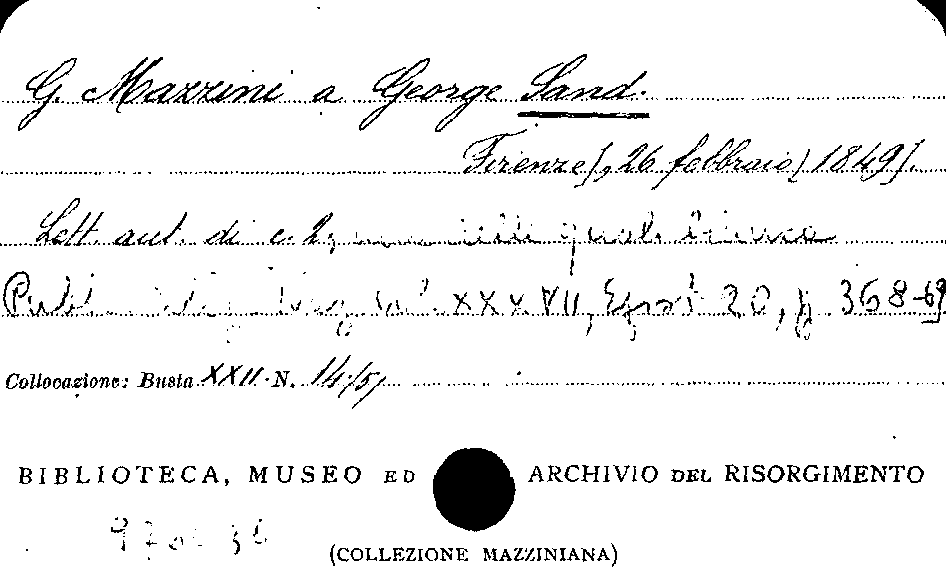 G. Mazzini a George Sand.
Firenze], 26 febbraio [1849].
Lett. aut. di c. 2, una delle quali bianca
Pubbl. XXXVII, Epist. 20, p. 368-69
Collocazione: Busta XXII. N. 14/5,
BIBLIOTECA, MUSEO ED ARCHIVIO DEL RISORGIMENTO
(COLLEZIONE MAZZINIANA)